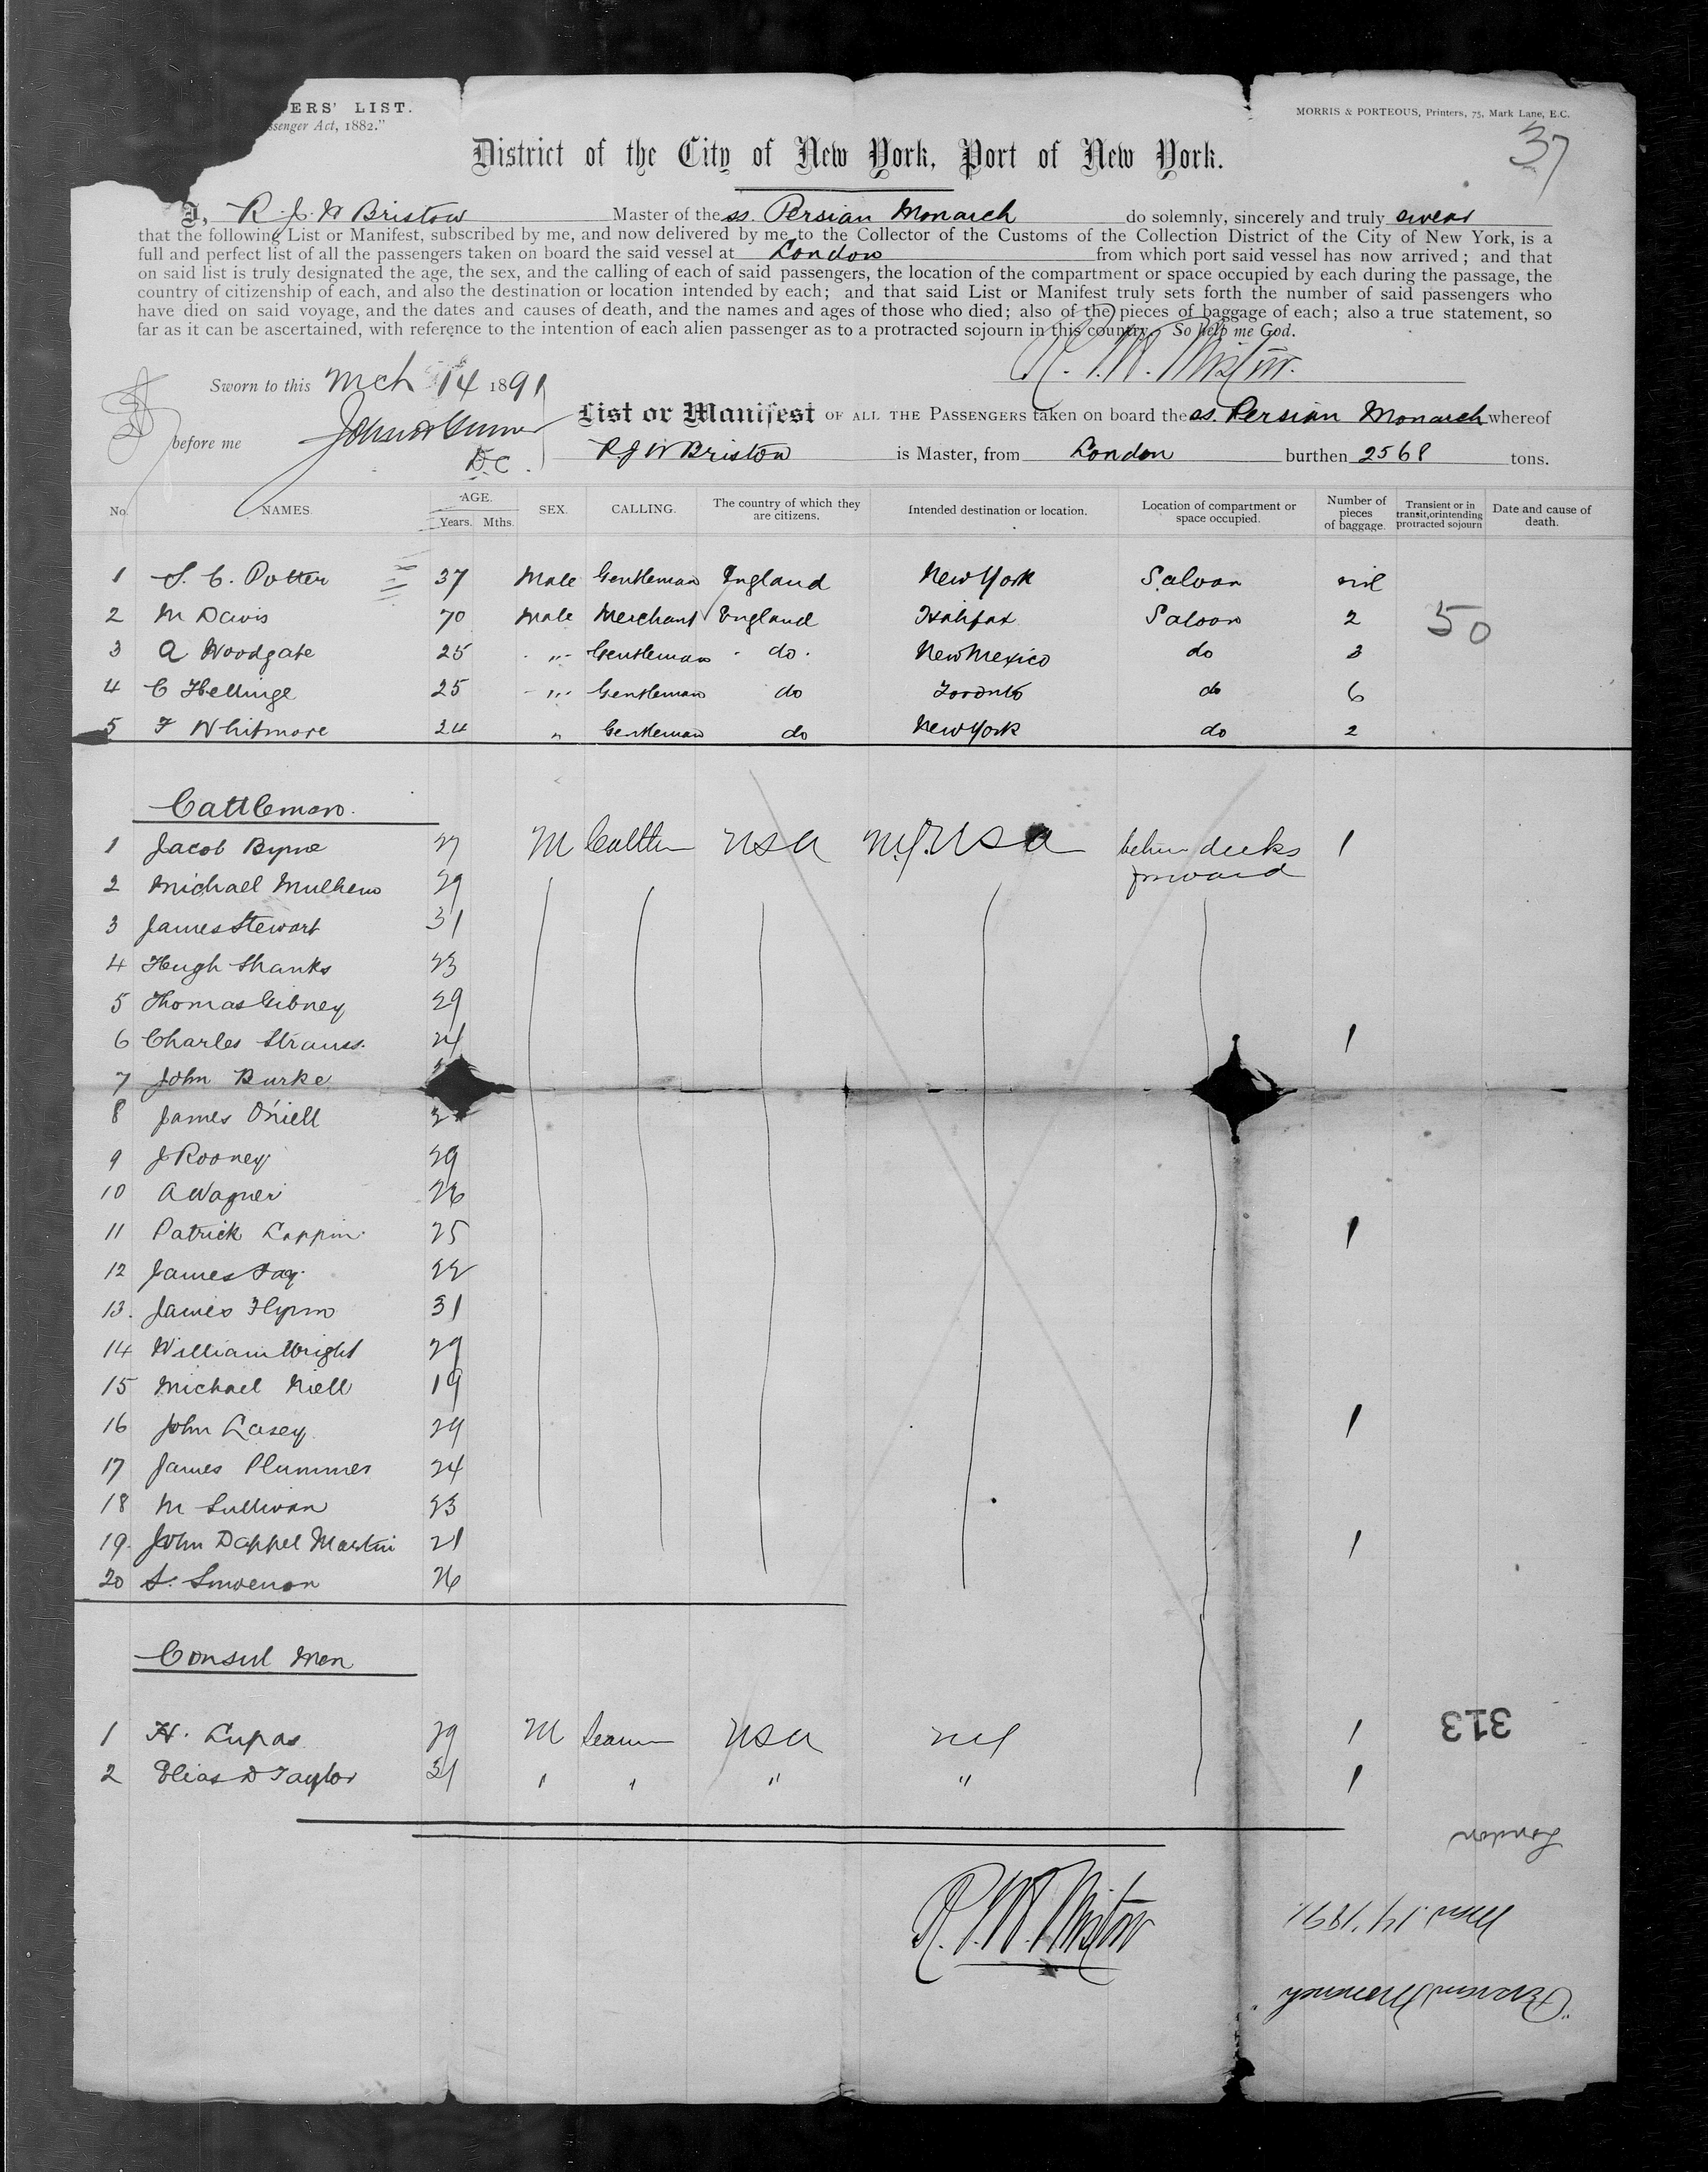 ERS' LIST.
ssenger Act, 1882."
MORRIS & PORTEOUS, Printers, 75, Mark Lane, E.C.
37
District of the City of New York, Port of New York.
I, R. J. W Bristow Master of the ss. Persian Monarch do solemnly, sincerely and truly swear
that the following List or Manifest, subscribed by me, and now delivered by me to the Collector of the Customs of the Collection District of the City of New York, is a
full and perfect list of all the passengers taken on board the said vessel at London from which port said vessel has now arrived; and that
on said list is truly designated the age, the sex, and the calling of each of said passengers, the location of the compartment or space occupied by each during the passage, the
country of citizenship of each, and also the destination or location intended by each; and that said List or Manifest truly sets forth the number of said passengers who
have died on said voyage, and the dates and causes of death, and the names and ages of those who died; also of the pieces of baggage of each; also a true statement, so
far as it can be ascertained, with reference to the intention of each alien passenger as to a protracted sojourn in this country. So help me God.
Sworn to this Mch 14 1891
List or Manifest OF ALL THE PASSENGERS taken on board the ss. Persian Monarch whereof
before me
D.C.
R J W Bristow is Master, from London burthen 2568 tons.
No. NAMES. AGE. Years. Mths. SEX. CALLING. The country of which they are citizens. Intended destination or location. Location of compartment or space occupied. Number of pieces of baggage. Transient or in transit, or intending protracted sojourn Date and cause of death.
1 S. C. Potter 37 Male Gentleman England New York Saloon nil
2 M Davis 70 Male Merchant England Halifax Saloon 2
50
3 A Woodgate 25 " Gentleman do. New Mexico do 3
4 C Hellinge 25 " Gentleman do Toronto do 6
5 F Whitmore 24 " Gentleman do New York do 2
Cattlemen.
1 Jacob Byrne 27 M Cattle USA USA below decks 1
forward
2 Michael Mulhern 29
3 James Stewart 31
4 Hugh Shanks 23
5 Thomas Gibney 29
6 Charles Strauss. 24 1
7 John Burke
8 James O'niell
9 J Rooney 29
10 A Wagner 26
11 Patrick Lappin 25 1
12 James Fay 22
13. James Flynn 31
14 William Wright 29
15 Michael Niell 19
16 John Casey 24 1
17 James Plummer 24
18 M Sullivan 23
19. John Dappel Martin 21 1
20 S. 26
Consul Men
1 H. Lupas 29 M Seaman USA 1
2 Elias D Taylor 31 " " " " 1
313
London
Mar. 14, 1891.
"Persian Monarch"